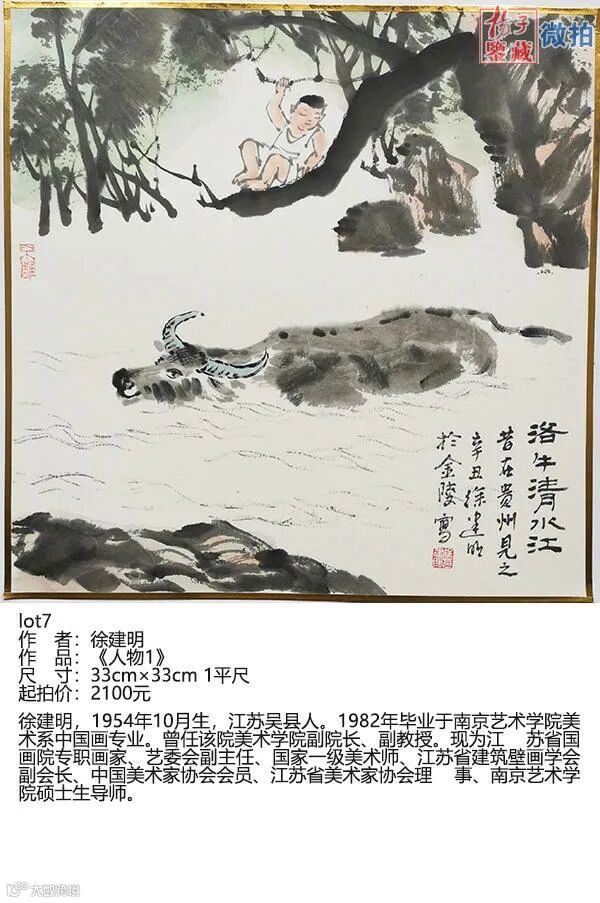 揚子
鑒藏
微拍
浴牛清水江
昔在贵州见之
辛丑徐建明
於金陵寫
lot7
作 者：徐建明
作 品：《人物1》
尺 寸：33cm×33cm 1平尺
起拍价：2100元
徐建明，1954年10月生，江苏吴县人。1982年毕业于南京艺术学院美
术系中国画专业。曾任该院美术学院副院长、副教授。现为江 苏省国
画院专职画家、艺委会副主任、国家一级美术师、江苏省建筑壁画学会
副会长、中国美术家协会会员、江苏省美术家协会理 事、南京艺术学
院硕士生导师。